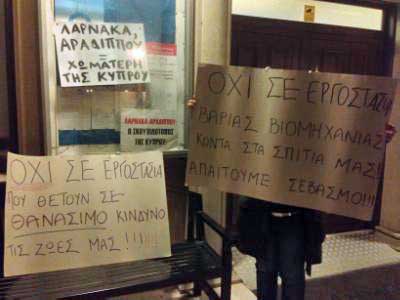 ΛΑΡΝΑΚΑ,
ΑΡΑΔΙΠΠΟΥ
=
ΧΩΜΑΤΕΡΗ
ΤΗΣ ΚΥΠΡΟΥ
ΛΑΡΝΑΚΑ-ΑΡΑΔΙΠΠΟΥ
Ο ΣΚΟΥΠΙΔΟΤΟΠΟΣ
ΤΗΣ ΚΥΠΡΟΥ
ΟΧΙ ΣΕ ΕΡΓΟΣΤΑΣΙΑ
ΒΑΡΙΑΣ ΒΙΟΜΗΧΑΝΙΑΣ
ΚΟΝΤΑ ΣΤΑ ΣΠΙΤΙΑ ΜΑΣ!
ΑΠΑΙΤΟΥΜΕ ΣΕΒΑΣΜΟ!!!
ΟΧΙ ΣΕ ΕΡΓΟΣΤΑΣΙΑ
ΠΟΥ ΘΕΤΟΥΝ ΣΕ
ΘΑΝΑΣΙΜΟ ΚΙΝΔΥΝΟ
ΤΙΣ ΖΩΕΣ ΜΑΣ!!!!!